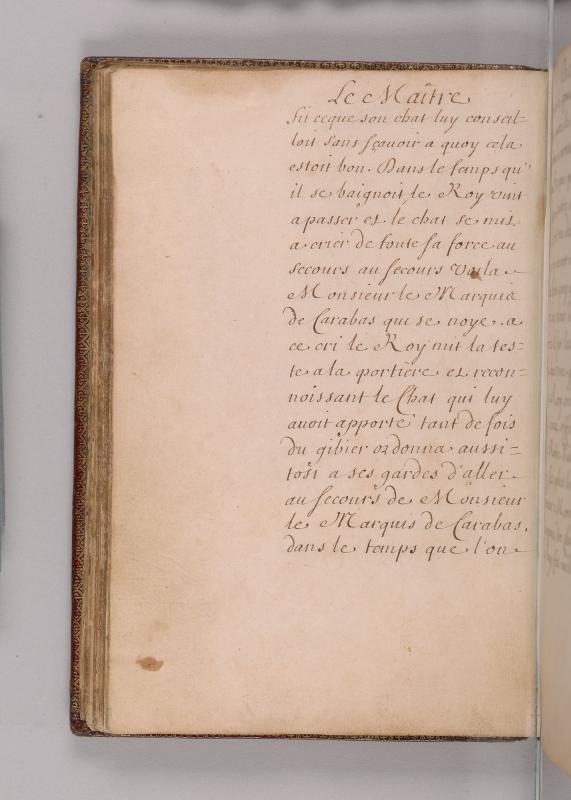 Le Maître
fit ceque son chat luy conseil=
loit sans sçavoir a quoy cela
estoit bon. Dans le temps qu'
il se baignoit, le Roy vint
a passer et le chat se mit
a crier de toute sa force au
secours au secours voila
Monsieur le Marquis
de Carabas qui se noye. a
ce cri le Roy mit la tes=
te a la portière et recon=
noissant le Chat qui luy
avoit apporté tant de fois
du gibier ordonna aussi=
tost a ses gardes d'aller
au secours de Monsieur
le Marquis de Carabas.
dans le temps que l'on